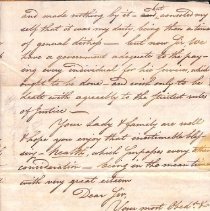 and made nothing by it — but consoled my
self that it was my duty, being then a time
of general distress — but now Sir We
have a government adequate to the pay-
ing every individual for his services, which
ought to be done and consistently
with agreeably to the strictest rules
of justice —
Your Lady & family are well
& hope you enjoy that inestimable bles-
sing Health, which surpasses every other
consideration — being in the mean time
with very great esteem
Dear Sir,
Your most Obed.t